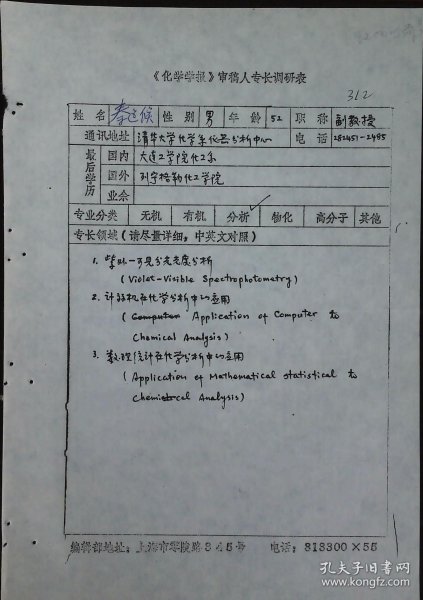 《化学学报》审稿人专长调研表
312
姓名 秦建侯 性别 男 年龄 52 职称 副教授
通讯地址 清华大学化学系仪器分析中心 电话 282451-2485
最后学历 国内 大连工学院化工系
国外 列宁格勒化工学院
业余
专业分类 无机 有机 分析 物化 高分子 其他
专长领域（请尽量详细，中英文对照）
1. 紫外-可见分光光度分析
(Violet-Visible Spectrophotometry)
2. 计算机在化学分析中的应用
(Computer Application of Computer to
Chemical Analysis)
3. 数理统计在化学分析中的应用
(Application of Mathematical statistical to
Chemical Analysis)
编辑部地址：上海市零陵路345号 电话：313300×55
孔夫子旧书网
www.kongfz.com